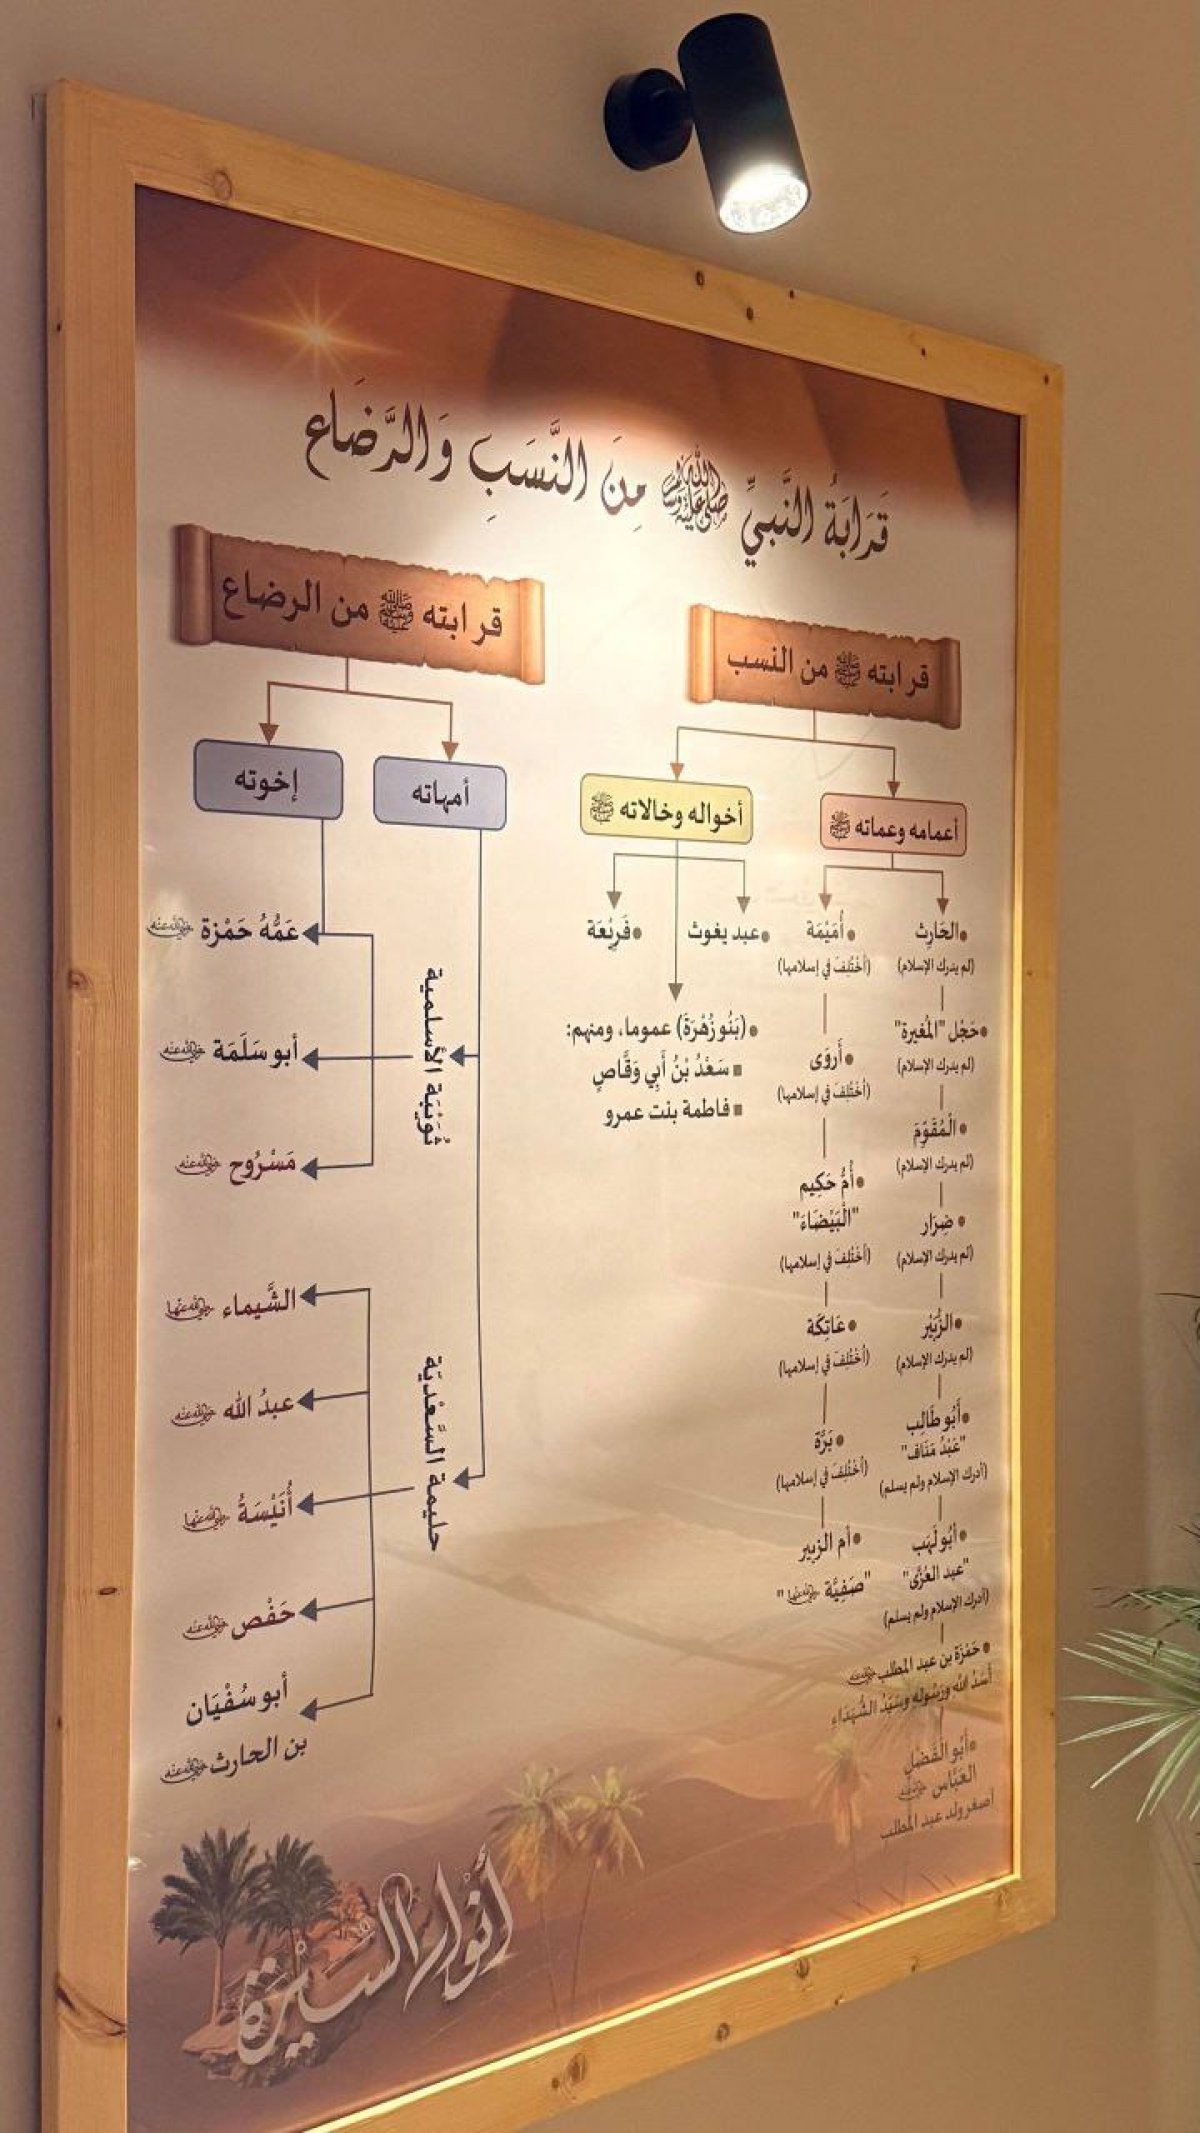 قَرَابَةُ النَّبِيِّ ﷺ مِنَ النَّسَبِ وَالرَّضَاع
قرابته ﷺ من النسب
أعمامه وعماته ﷺ
•الحَارِث
(لم يدرك الإسلام)
•حَجْل "المُغيرة"
(لم يدرك الإسلام)
•الْمُقَوِّمَ
(لم يدرك الإسلام)
•ضِرَار
(لم يدرك الإسلام)
•الزُّبَيْر
(لم يدرك الإسلام)
•أَبُو طَالِب
"عَبْدُ مَنَاف"
(أدرك الإسلام ولم يسلم)
•أَبُو لَهَب
"عبد العُزَّى"
(أدرك الإسلام ولم يسلم)
•حَمْزَة بن عبد المطلب رضي الله عنه
أَسَدُ اللهِ وَرَسُولِه وَسَيِّدُ الشُّهَدَاءِ
•أَبُو الْفَضْلِ
العَبَّاس رضي الله عنه
أصغر ولد عبد المطلب
•أُمَيْمَة
(اُخْتُلِفَ في إسلامها)
•أَروَى
(اُخْتُلِفَ في إسلامها)
•أُمُّ حَكِيم
"الْبَيْضَاءَ"
(اُخْتُلِفَ في إسلامها)
•عَاتِكَة
(اُخْتُلِفَ في إسلامها)
•بَرَّة
(اُخْتُلِفَ في إسلامها)
•أم الزبير
"صَفِيَّة رضي الله عنها"
أخواله وخالاته ﷺ
•عبد يغوث
•فَرِيْعَة
•(بَنُو زُهْرَةَ) عموما، ومنهم:
▪سَعْدُ بْنُ أَبِي وَقَّاصٍ
▪فاطمة بنت عمرو
قرابته ﷺ من الرضاع
أمهاته
إخوته
ثُوَيْبَة الأسلمية
عَمُّهُ حَمْزة رضي الله عنه
أبو سَلَمَة رضي الله عنه
مَسْرُوح رضي الله عنه
حليمة السَّعْديّة
الشَّيماء رضي الله عنها
عبدُ الله رضي الله عنه
أُنَيْسَةُ رضي الله عنها
حَفْص رضي الله عنه
أبو سُفْيَان
بن الحارث رضي الله عنه
أنوار السيرة